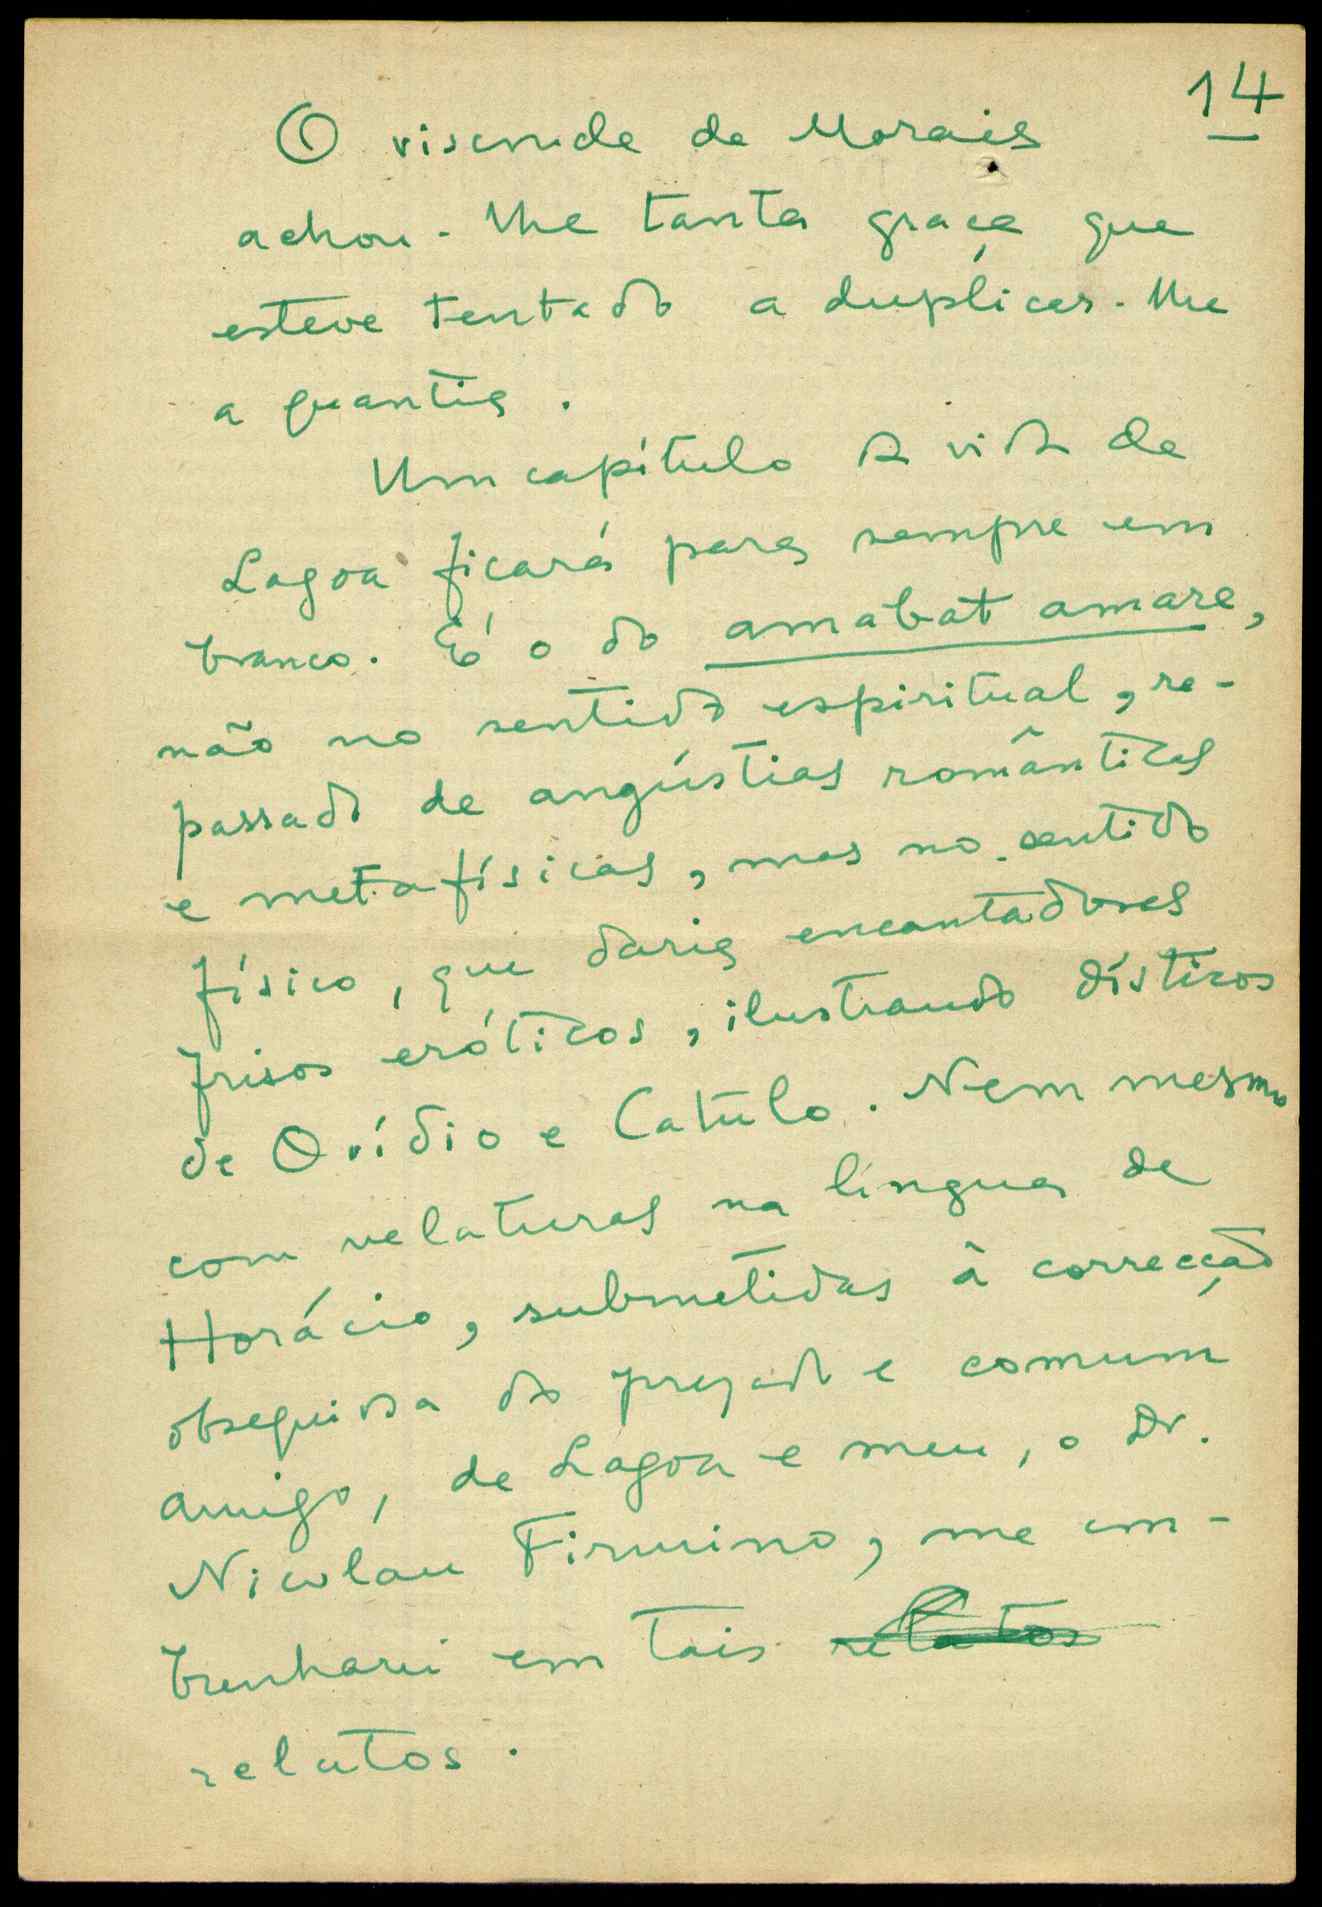 14
O visconde de Morais
achou-lhe tanta graça que
esteve tentado a duplicar-lhe
a quantia.
Um capítulo da vida de
Lagoa ficará para sempre em
branco. É o do amabat amare,
não no sentido espiritual, re-
passado de angústias românticas
e metafísicas, mas no sentido
físico, que daria encantadores
frisos eróticos, ilustrando dísticos
de Ovídio e Catulo. Nem mesmo
com velaturas na língua de
Horácio, submetidas à correcção
obsequiosa do prezado e comum
amigo, de Lagoa e meu, o Dr.
Nicolau Firmino, me em-
brenharei em tais relatos
relatos.